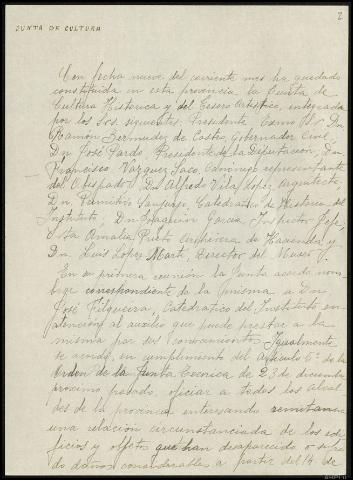 2
JUNTA DE CULTURA
Con fecha nueve del corriente mes ha quedado
constituida en esta provincia la Junta de
Cultura Historica y del Tesoro Artistico, integrada
por los Srs. siguientes: Presidente, Excmo Sr Dn
Ramón Bermudez de Castro, Gobernador Civil,
Dn José Pardo Presidente de la Diputacion, Dn
Francisco Vazquez Saco, Canonigo representante
del Obispado; Dn Alfredo Vila Lopez arquitecto,
Dn Catedratico de Historia del
Instituto; Dn Joaquin Garcia Inspector Jefe,
Srta Amalia Prieto Archivera de Hacienda y
Dn Luis Lopez Marti, Director del Museo.
En su primera reunión la Junta acordo nom-
brar correspondiente de la misma a Dn
José Filgueira, Catedratico del Instituto en
atención al auxilio que puede prestar a la
misma por sus conocimientos. Igualmente
se acordó, en cumplimiento del Articulo 6º de la
Orden de la Junta Tecnica de 23 de diciembre
proximo pasado, oficiar a todos los Alcal-
des de la provincia interesando remitan
una relación circunstanciada de los edi-
ficios y objetos que han desaparecido o sufri-
do daños considerables a partir del 14 de